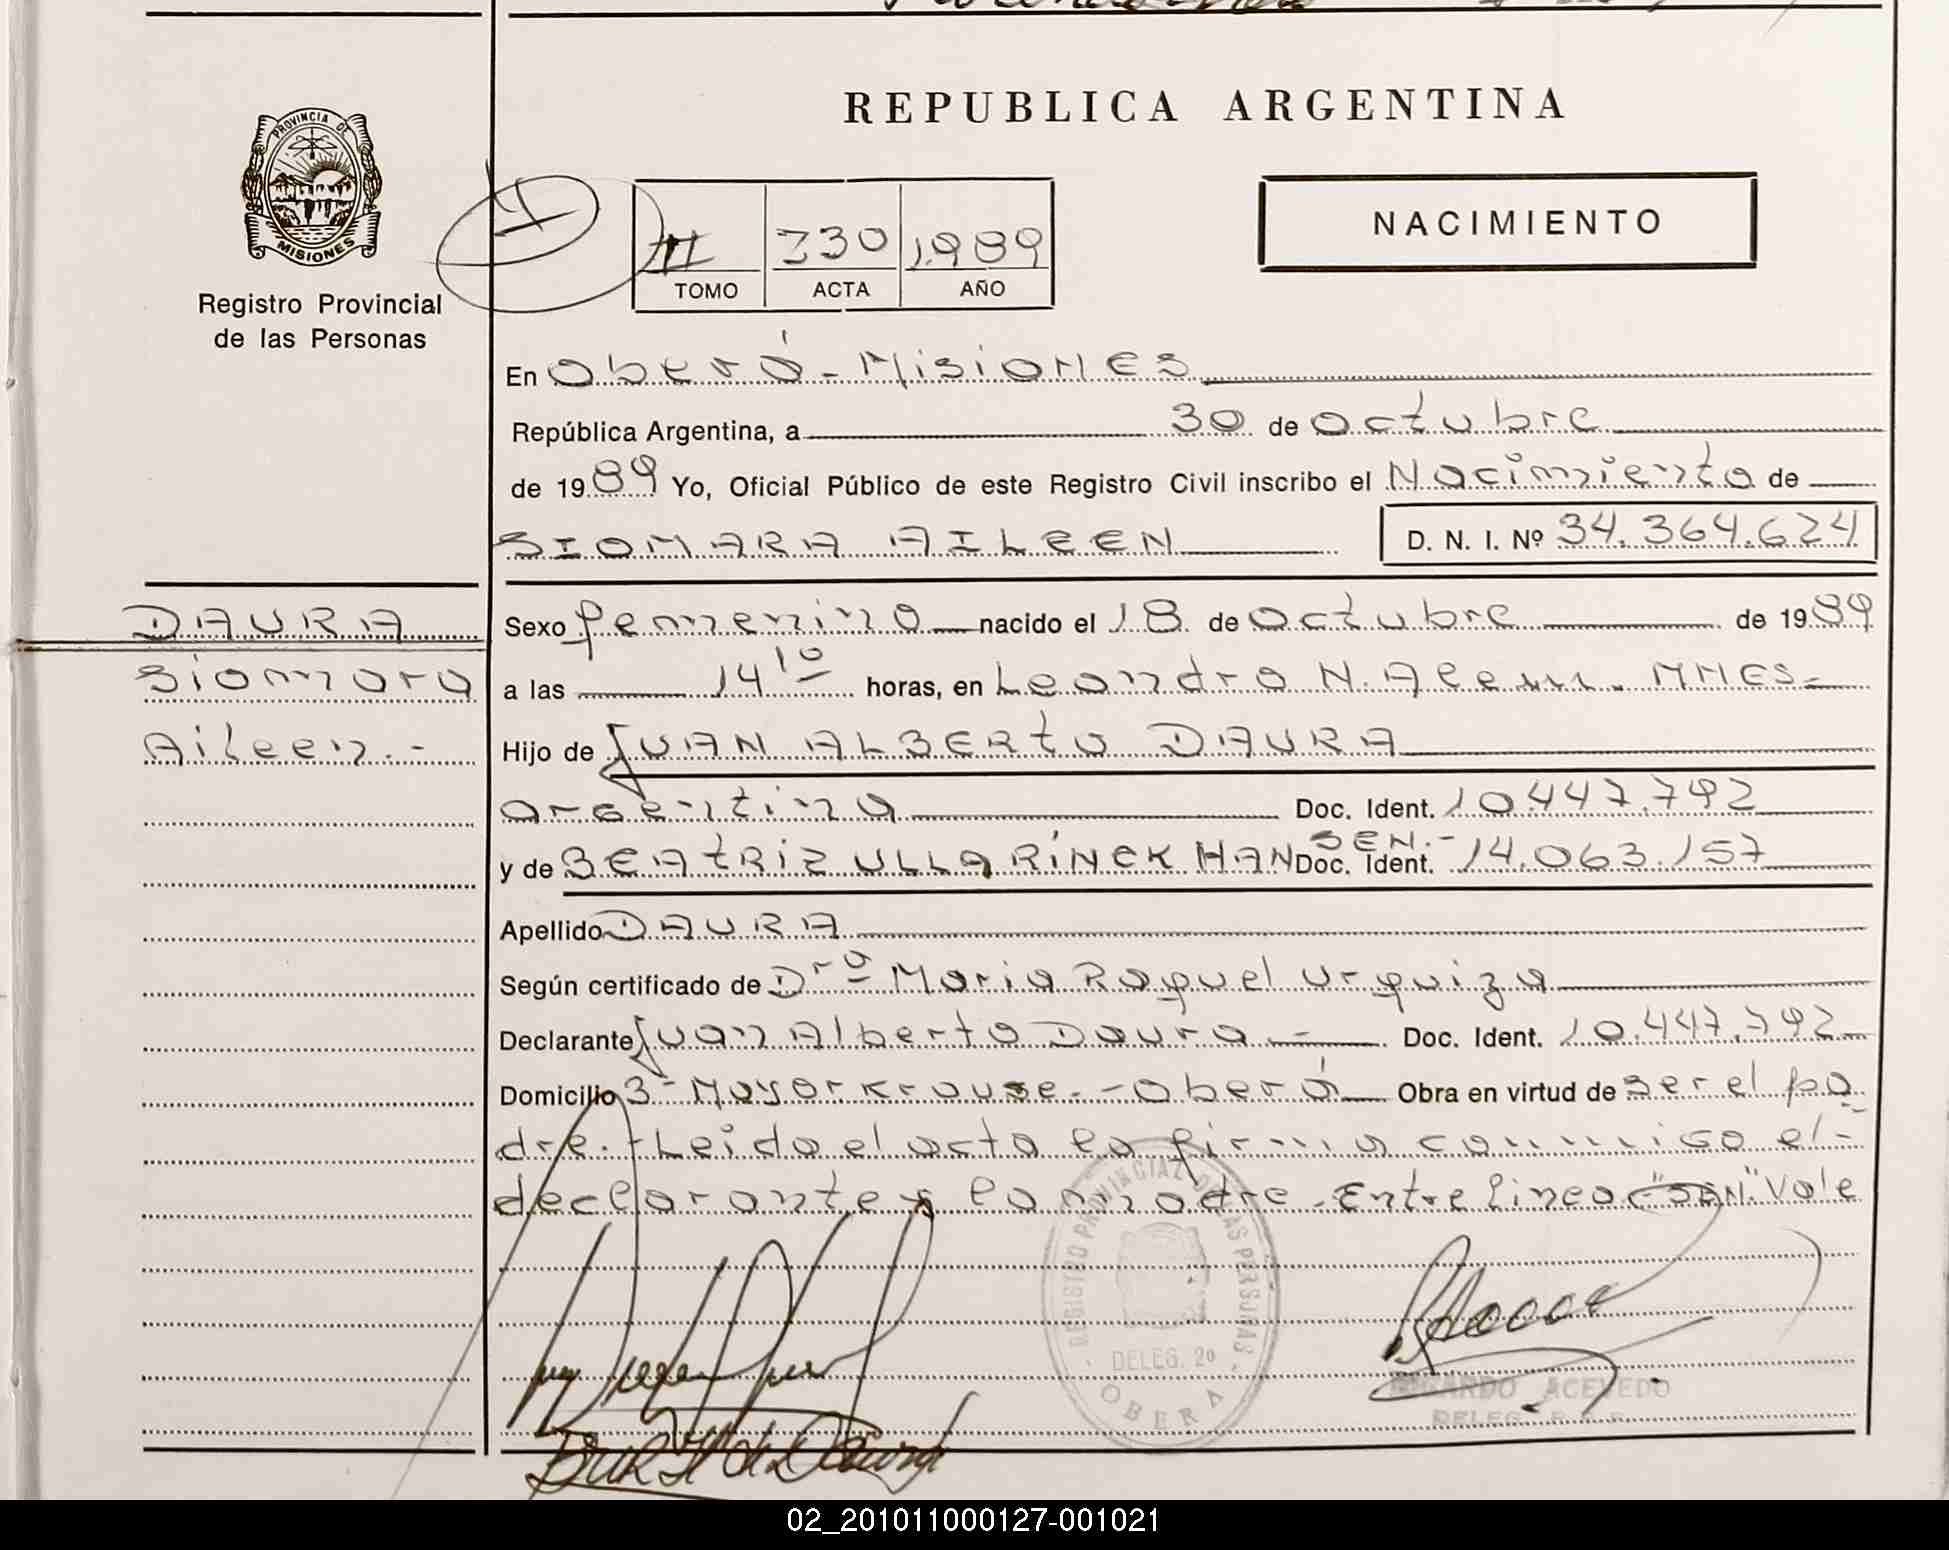 REPUBLICA ARGENTINA
PROVINCIA DE
MISIONES
Registro Provincial
de las Personas
III 330 1989
TOMO ACTA AÑO
NACIMIENTO
En Oberá - Misiones
República Argentina, a 30 de octubre
de 1989 Yo, Oficial Público de este Registro Civil inscribo el Nacimiento de
SIOMARA AILEEN D. N. I. Nº 34.364.624
DAURA
Siomara
Aileen.-
Sexo femenino nacido el 18 de octubre de 1989
a las 14 10 horas, en Leandro N. Alem. MNES-
Hijo de JUAN ALBERTO DAURA
argentina Doc. Ident. 10.447.792
SEN.-
y de BEATRIZ ULLA RINCK HAN Doc. Ident. 14.063.157
Apellido DAURA
Según certificado de Dra Maria Raquel Urquiza
Declarante Juan Alberto Daura - Doc. Ident. 10.447.792
Domicilio 3- Mayor Krause.- Oberá Obra en virtud de ser el pa-
dre.- Leida el acta la firma conmigo el-
declarante y la madre. Entre linea "SEN" Vale
REGISTRO PROVINCIAL DE LAS PERSONAS
DELEG. 20
OBERA
RICARDO ACEVEDO
DELEG. R.P.P.
02_201011000127-001021